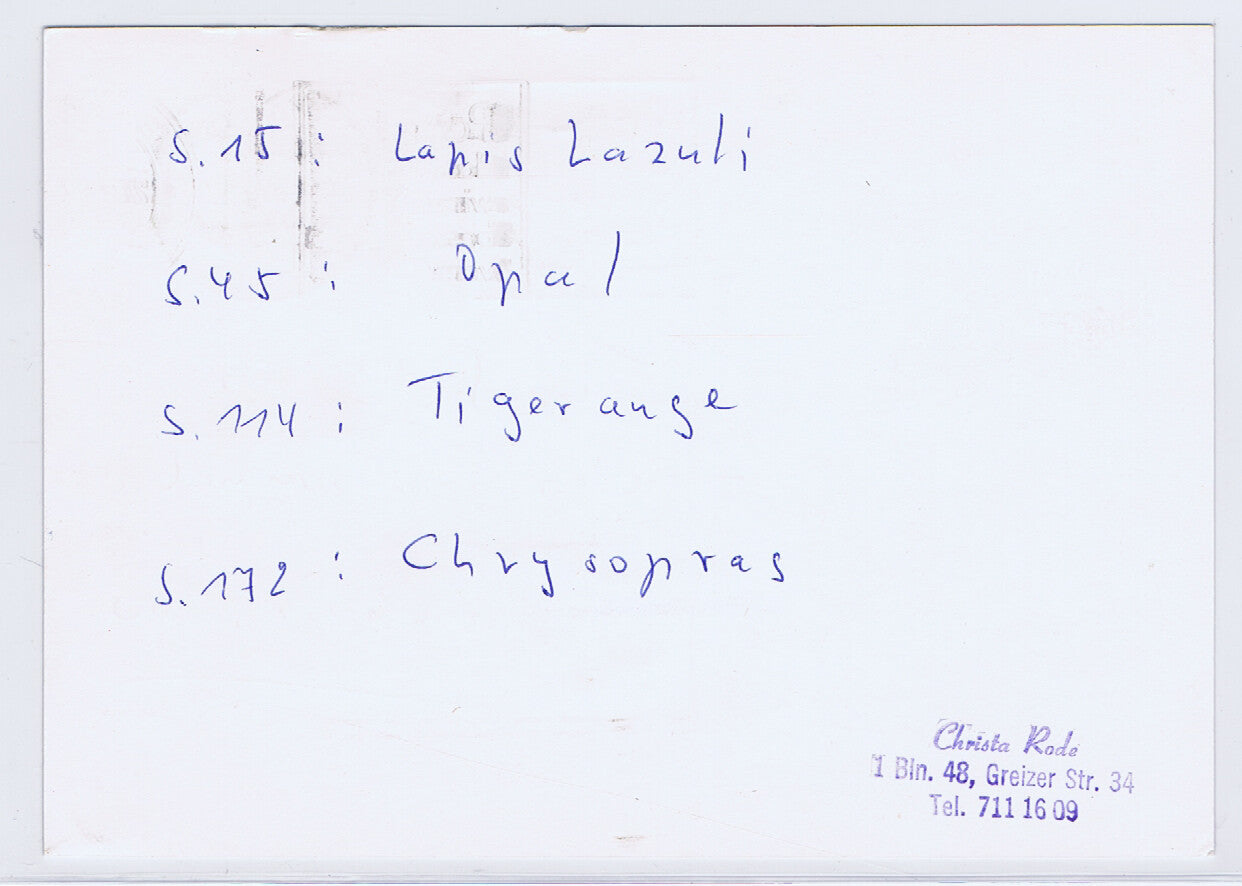 S. 15 : Lapis Lazuli
S. 45 : Opal
S. 114 : Tigerauge
S. 172 : Chrysopras
Christa Rode
1 Bln. 48, Greizer Str. 34
Tel. 711 16 09